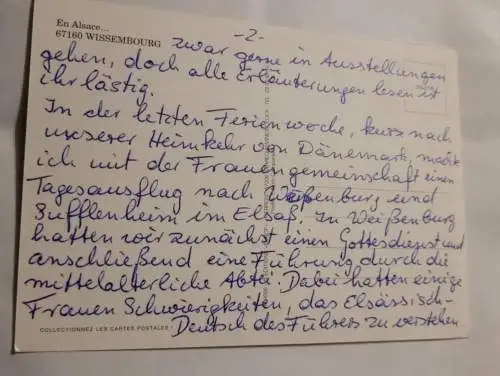 En Alsace...
67160 WISSEMBOURG
-2-
zwar gerne in Ausstellungen
gehen, doch alle Erläuterungen lesen ist
ihr lästig.
In der letzten Ferienwoche, kurz nach
unserer Heimkehr von Dänemark, machte
ich mit der Frauengemeinschaft einen
Tagesausflug nach Weißenburg und
Sufflenheim im Elsaß. In Weißenburg
hatten wir zunächst einen Gottesdienst und
anschließend eine Führung durch die
mittelalterliche Abtei. Dabei hatten einige
Frauen Schwierigkeiten, das Elsässisch-
Deutsch des Führers zu verstehen
COLLECTIONNEZ LES CARTES POSTALES